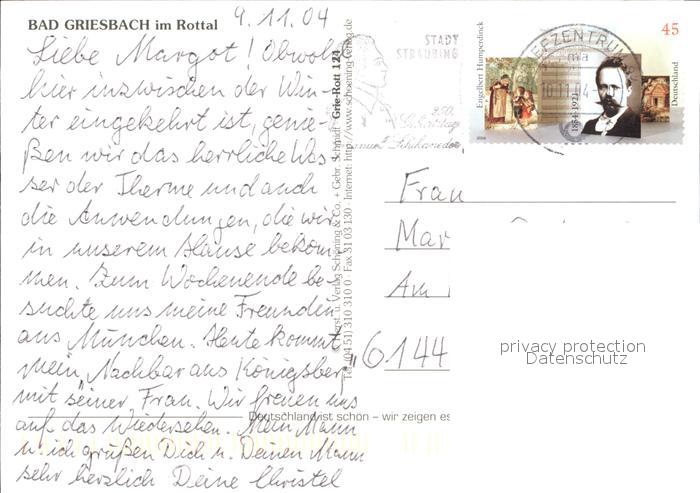 BAD GRIESBACH im Rottal
9.11.04
Liebe Margot! Obwohl
hier inzwischen der Win-
ter eingekehrt ist, genie-
ßen wir das herrliche Was-
ser der Therme und auch
die Anwendungen, die wir
in unserem Hause bekom-
men. Zum Wochenende be-
suchte uns meine Freundin
aus München. Heute kommt
mein "Nachbar aus Königsberg"
mit seiner Frau. Wir freuen uns
auf das Wiedersehen. Mein Mann
u. ich grüßen Dich u. Deinen Mann
sehr herzlich Deine Christel
Verlag Schöning & Co. + Gebr. Schmidt Grie-Rott 124
Tel. (0451) 310 310 0 · Fax 31 03 130 · Internet: http://www.schoening-verlag.de
Deutschland ist schön – wir zeigen es
STADT
STRAUBING
250.
Schikaneder
BRIEFZENTRUM
10.11.04
Engelbert Humperdinck
1854-1921
45
Deutschland
Frau
Mar
Am
6144
privacy protection
Datenschutz